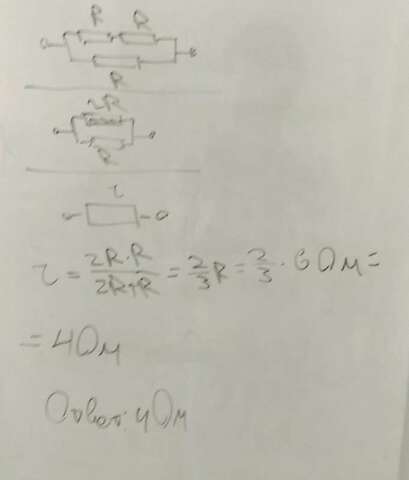 R R
R
2R
R
r
r = 2R·R/2R+R = 2/3 R = 2/3 · 6 Ом =
= 4 Ом
Ответ: 4 Ом